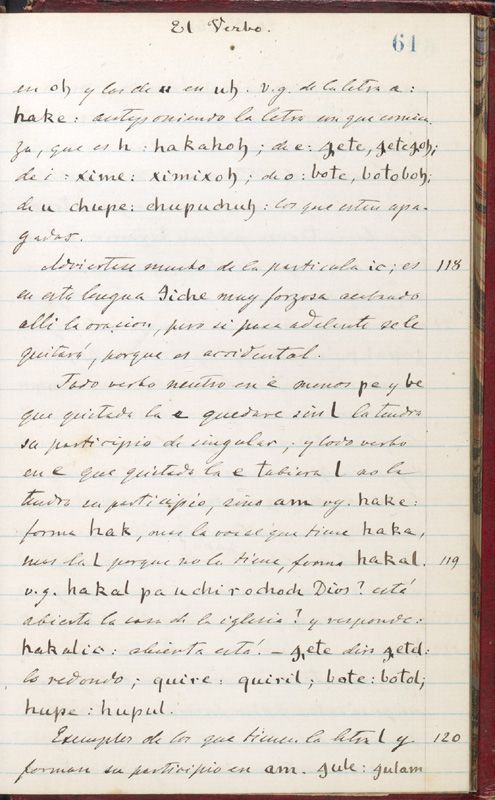 El Verbo.
61
en oꜧ y los de u en uꜧ. v.g. de la letra a:
hake: anteponiendo la letra con que comien-
za, que es h: hakahoꜧ; de e: ꜫete, ꜫeteꜫoꜧ;
de i: xime: ximixoꜧ; de o: bote, botoboꜧ;
de u chupe: chupuchuꜧ: los que esten apa-
gados.
Adviertase mucho de la particula ic; es 118
en esta lengua Ꜫiche muy forzosa acabando
alli la oracion, pero si pasa adelante se le
quitará, porque es accidental.
Todo verbo neutro en e menos pe y be
que quitada la e quedare sin l la tendra
su participio de singular; y todo verbo
en e que quitada la e tubiera l no la
tendra su participio, sino am vg. hake:
forma hak, mas la vocal que tiene haka,
mas la l porque no la tiene, forma hakal. 119
v.g. hakal pa uchi rochoch Dios? está
abierta la casa de la iglesia? y responde:
hakalic: abierta está. – ꜫete dira ꜫetel:
lo redondo; quire: quiril; bote: botol;
hupe: hupul.
Exemplos de los que tienen la letra l y 120
forman su participio en am. ꜫule: ꜫulam